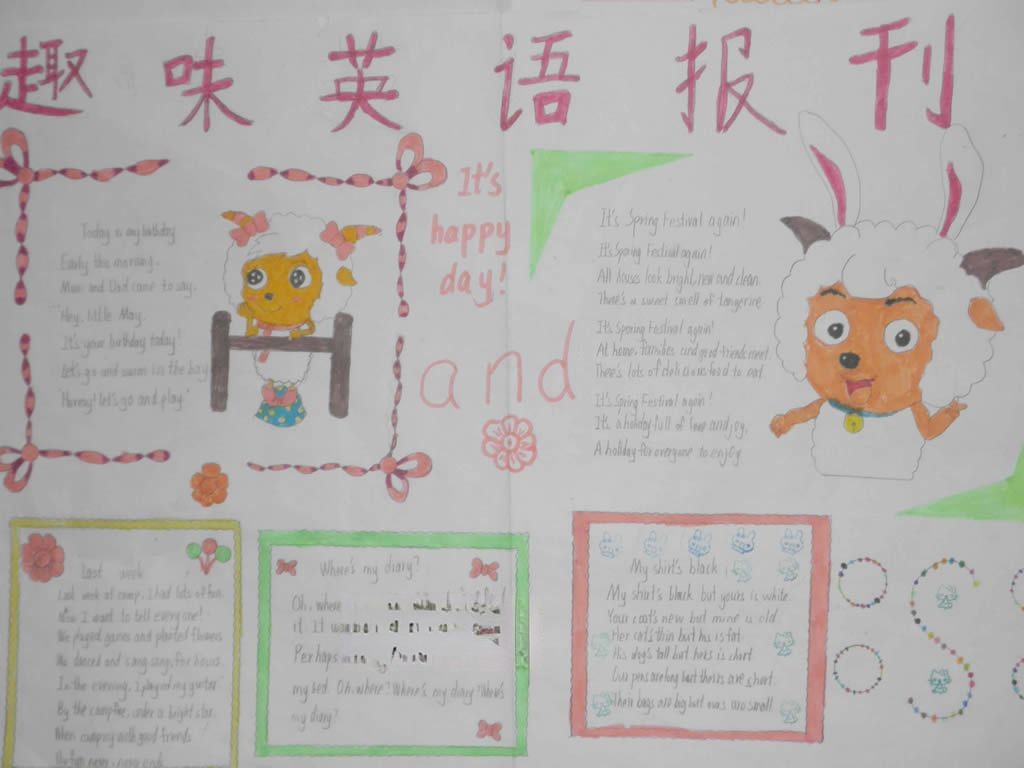 趣味英语报刊
It's
happy
day!
and
Today is my birthday
Early this morning.
Mum and Dad came to say.
"Hey, little May.
It's your birthday today!
Let's go and swim in the bay
"Hurray! let's go and play."
It's Spring Festival again!
It's Spring Festival again!
All houses look bright, new and clean.
There's a sweet smell of tangerine
It's Spring Festival again!
At home, families and good friends meet.
There's lots of delicious food to eat.
It's Spring Festival again!
It's a holiday full of love and joy.
A holiday for everyone to enjoy
Last week
Last week at camp, I had lots of fun.
Now I want to tell every one!
We played games and planted flowers
We danced and sang song for hours.
In the evening, I played my guitar
By the campfire, under a bright star.
When camping with good friends
The fun never, never ends
Where's my diary?
Oh, where
it. It
Perhaps
my bed. Oh, where? Where's my diary? Where's
my diary?
My shirt's black
My shirt's black but yours is white.
Your coat's new but mine is old.
Her cat's thin but his is fat.
His dog's tall but hers is short
Our pens are long but theirs are short.
Their bags are big but ours are small.